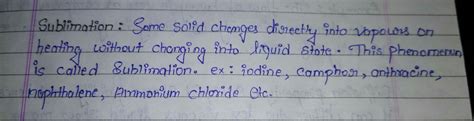 Sublimation : Some solid changes directly into vapours on
heating without changing into liquid state. This phenomenon
is called Sublimation. ex : iodine, camphor, anthracine,
naphthalene, Ammonium chloride etc.